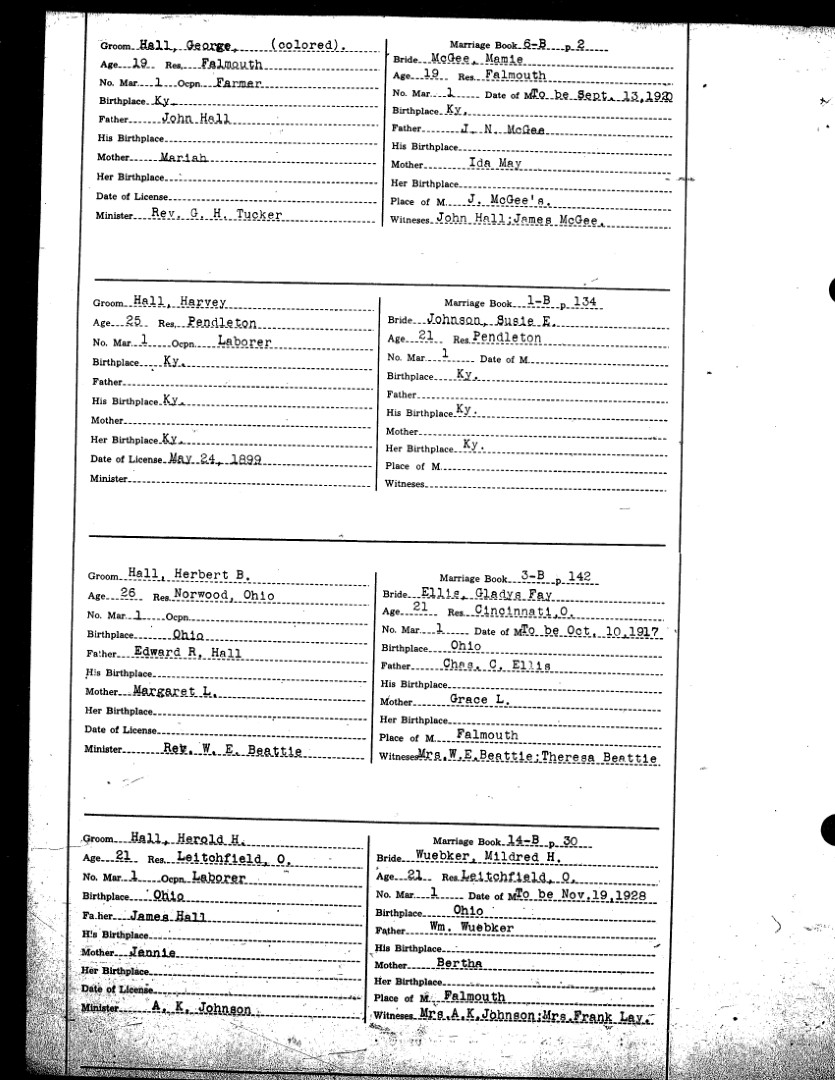 Groom Hall, George, (colored).
Age 19 Res. Falmouth
No. Mar. 1 Ocpn. Farmer
Birthplace Ky.
Father John Hall
His Birthplace
Mother Mariah
Her Birthplace
Date of License
Minister Rev. G. H. Tucker
Marriage Book 6-B p. 2
Bride McGee, Mamie
Age 19 Res. Falmouth
No. Mar. 1 Date of M To be Sept. 13, 1920
Birthplace Ky.
Father J. N. McGee
His Birthplace
Mother Ida May
Her Birthplace
Place of M. J. McGee's.
Witneses John Hall;James McGee.
Groom Hall, Harvey
Age 25 Res. Pendleton
No. Mar. 1 Ocpn. Laborer
Birthplace Ky.
Father
His Birthplace Ky.
Mother
Her Birthplace Ky.
Date of License May 24, 1899
Minister
Marriage Book 1-B p. 134
Bride Johnson, Susie E.
Age 21 Res. Pendleton
No. Mar. 1 Date of M.
Birthplace Ky.
Father
His Birthplace Ky.
Mother
Her Birthplace Ky.
Place of M.
Witneses
Groom Hall, Herbert B.
Age 26 Res. Norwood, Ohio
No. Mar. 1 Ocpn.
Birthplace Ohio
Father Edward R. Hall
His Birthplace
Mother Margaret L.
Her Birthplace
Date of License
Minister Rev. W. E. Beattie
Marriage Book 3-B p. 142
Bride Ellis, Gladys Fay
Age 21 Res. Cincinnati,O.
No. Mar. 1 Date of M To be Oct. 10,1917
Birthplace Ohio
Father Chas. C. Ellis
His Birthplace
Mother Grace L.
Her Birthplace
Place of M. Falmouth
Witneses Mrs.W.E.Beattie;Theresa Beattie
Groom Hall, Herold H.
Age 21 Res. Leitchfield, O.
No. Mar. 1 Ocpn. Laborer
Birthplace Ohio
Father James Hall
His Birthplace
Mother Jennie
Her Birthplace
Date of License
Minister A. K. Johnson
Marriage Book 14-B p. 30
Bride Wuebker, Mildred H.
Age 21 Res. Leitchfield, O.
No. Mar. 1 Date of M To be Nov.19,1928
Birthplace Ohio
Father Wm. Wuebker
His Birthplace
Mother Bertha
Her Birthplace
Place of M. Falmouth
Witneses Mrs.A.K.Johnson;Mrs.Frank Lay.